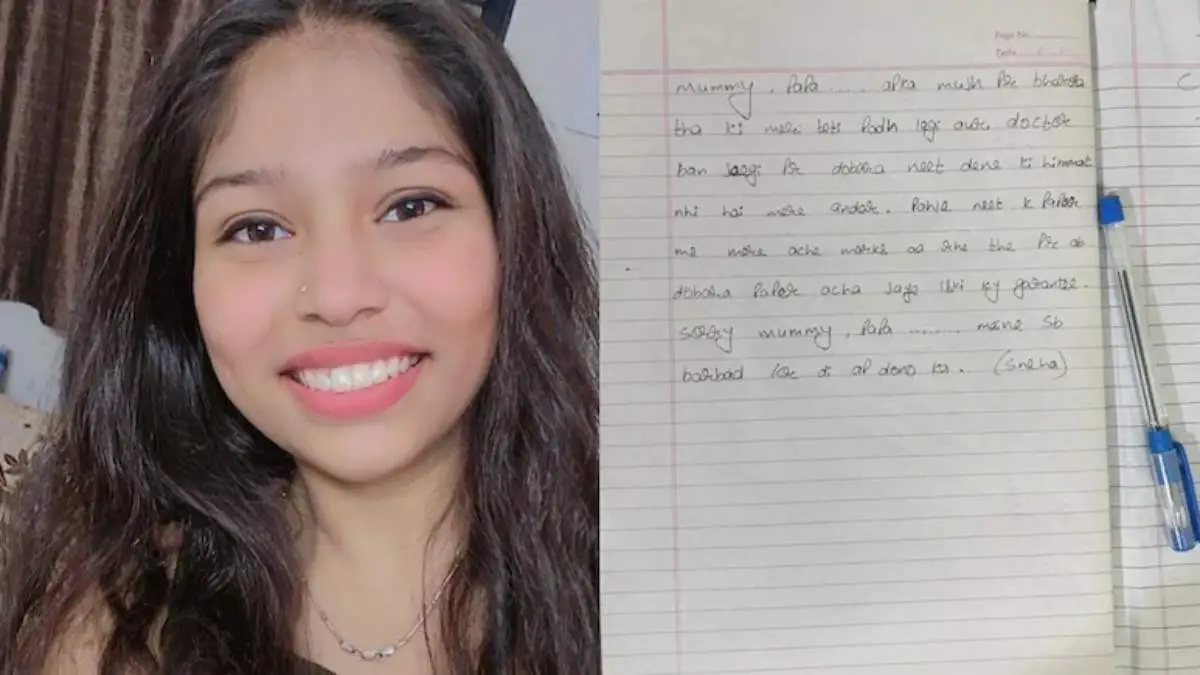 Page No.
Date / /
Mummy, Papa ..... apka mujh pr bharosa
tha ki meri beti padh legi aur doctor
ban jaegi pr dobara neet dene ki himmat
nhi hai mere andar. Pahle neet k paper
me mere ache marks aa rhe the pr ab
dobara paper acha jaye iski ky garantee.
sorry mummy, Papa ......... maine sb
barbad kr di ap dono ka. (Sneha)